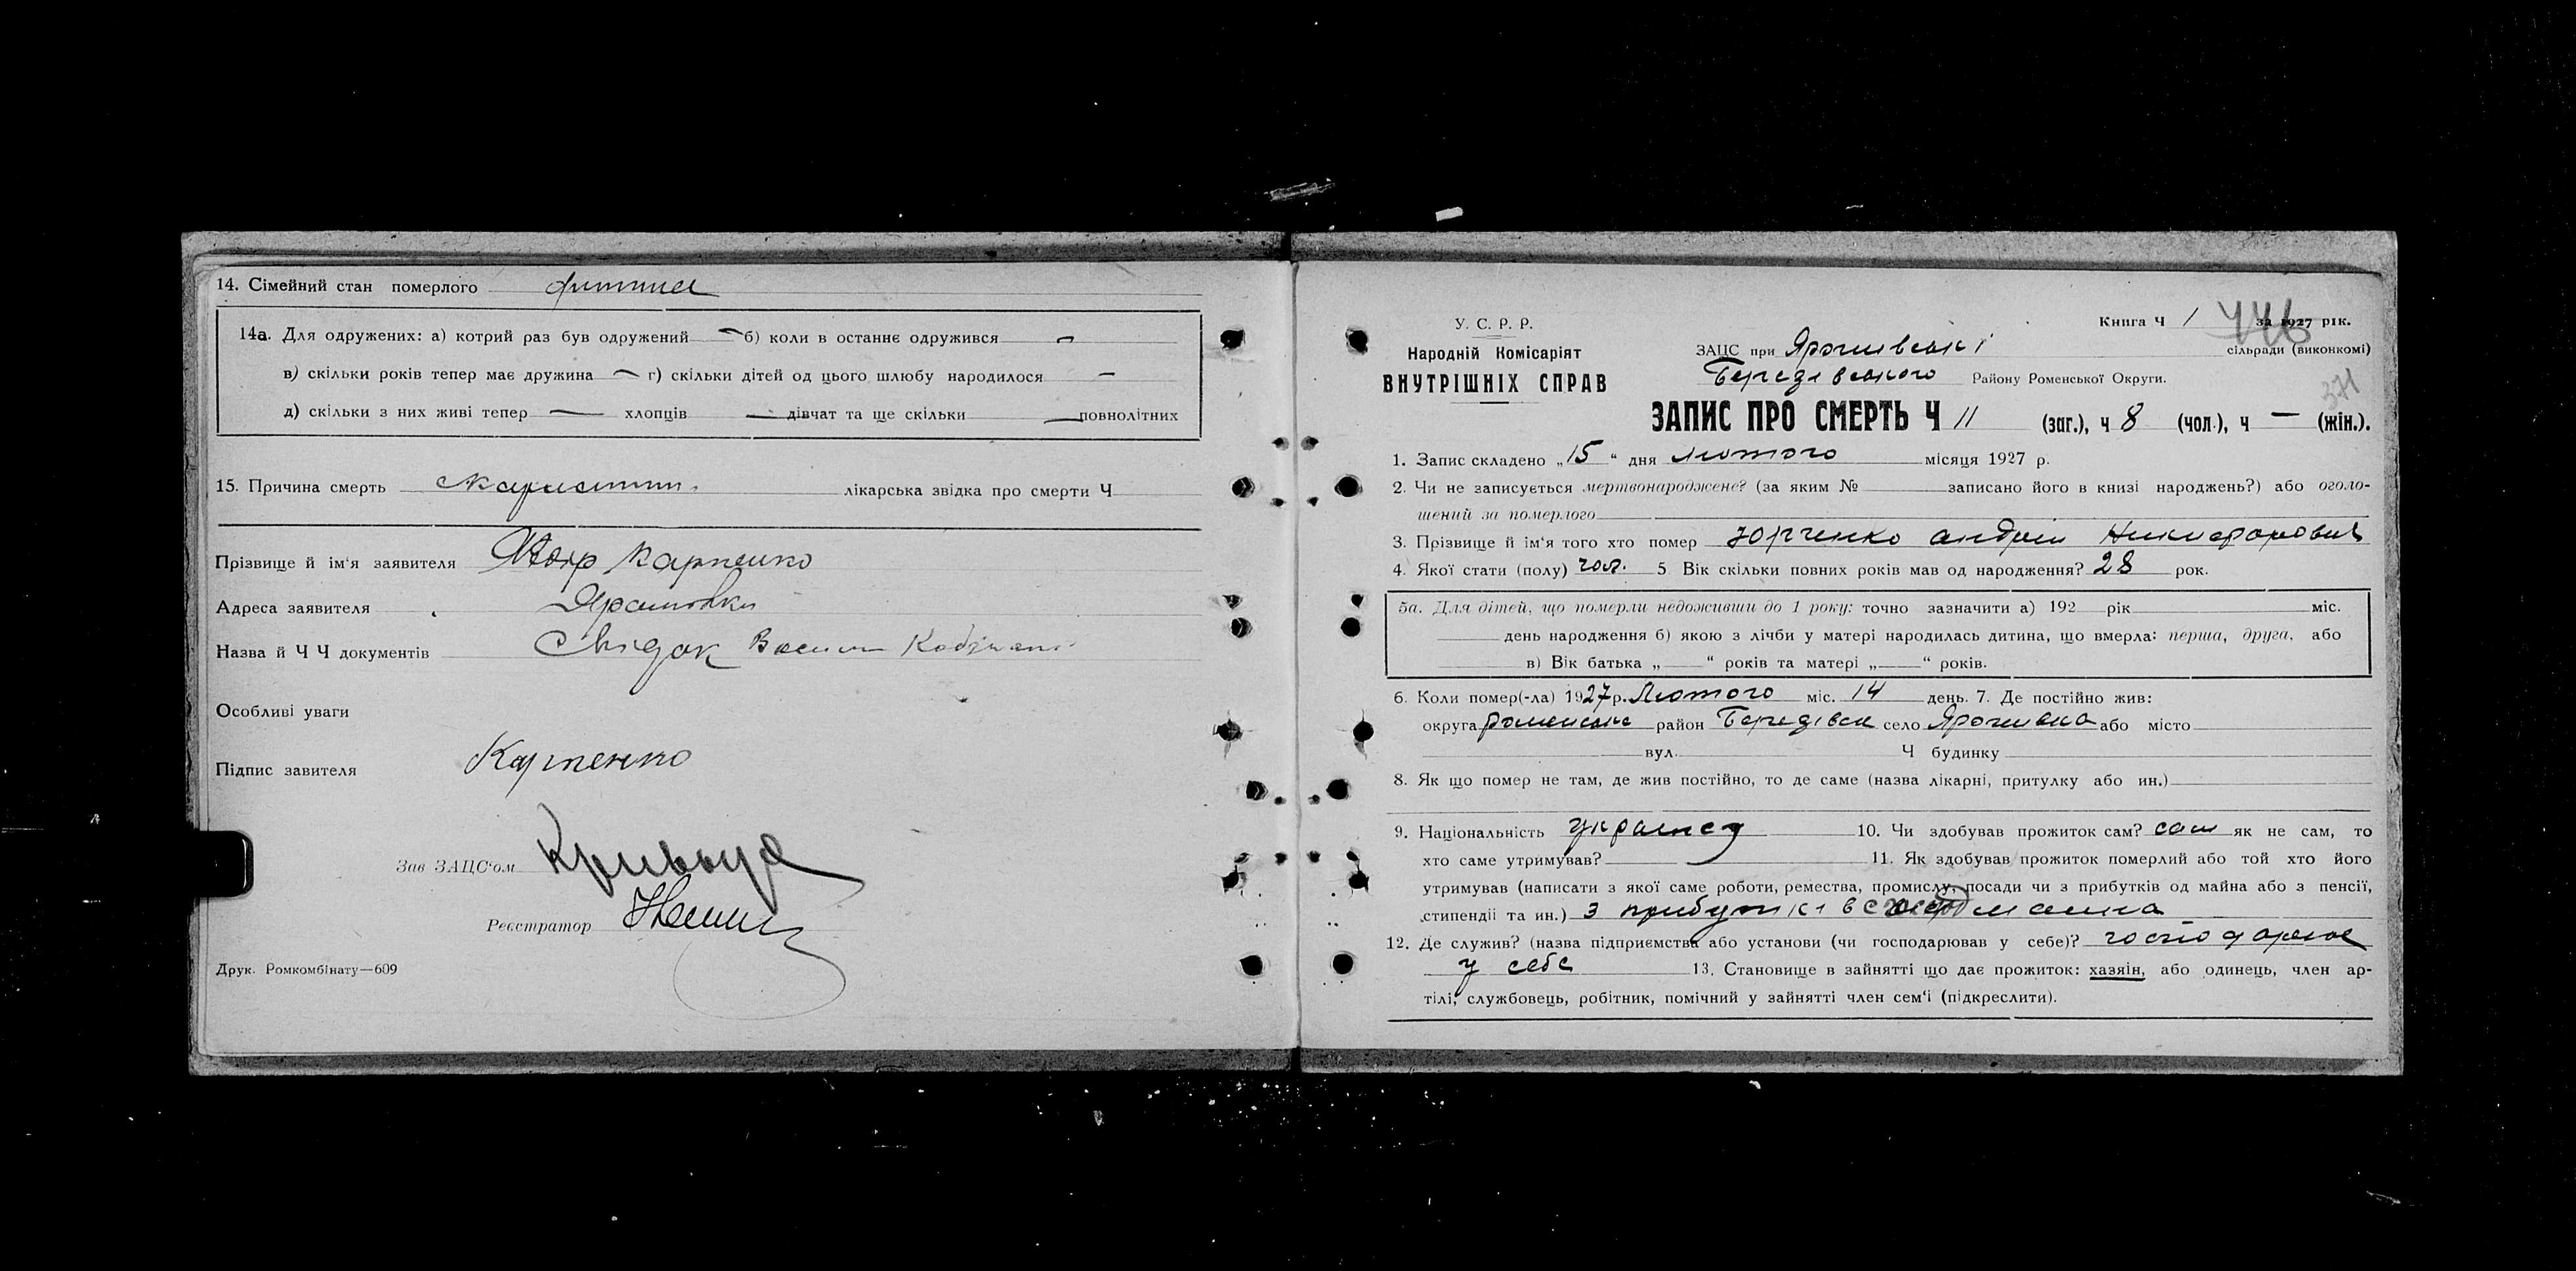 14. Сімейний стан померлого
14а. Для одружених: а) котрий раз був одружений — б) коли в останнє одружився —
в) скільки років тепер має дружина — г) скільки дітей од цього шлюбу народилося —
д) скільки з них живі тепер — хлопців — дівчат та ще скільки — повнолітних
15. Причина смерть лікарська звідка про смерти Ч
Прізвище й ім'я заявителя Карпенко
Адреса заявителя
Назва й Ч Ч документів Свідок Васил
Особливі уваги
Підпис завителя Карпенко
Зав ЗАЦС'ом
Реєстратор
Друк. Ромкомбінату—609
У. С. Р. Р.
Народній Комісаріят
ВНУТРІШНІХ СПРАВ
Книга Ч 1 за 1927 рік.
446
ЗАЦС при Ярошівські сільради (виконкомі)
Району Роменської Округи.
371
ЗАПИС ПРО СМЕРТЬ Ч 11 (заг.), ч 8 (чол.), ч — (жін.).
1. Запис складено „15" дня Лютого місяця 1927 р.
2. Чи не записується мертвонароджене? (за яким № записано його в книзі народжень?) або оголо-
шений за померлого
3. Прізвище й ім'я того хто помер Юрченко Андрій Никифорович
4. Якої стати (полу) чол. 5 Вік скільки повних років мав од народження? 28 рок.
5а. Для дітей, що померли недоживши до 1 року: точно зазначити а) 192 рік міс.
день народження б) якою з лічби у матері народилась дитина, що вмерла: перша, друга, або
в) Вік батька „ " років та матері „ " років.
6. Коли помер(-ла) 1927р. Лютого міс. 14 день. 7. Де постійно жив:
округа Роменська район село Ярошивка або місто
вул. Ч будинку
8. Як що помер не там, де жив постійно, то де саме (назва лікарні, притулку або ин.)
9. Національність українец 10. Чи здобував прожиток сам? сам як не сам, то
хто саме утримував? 11. Як здобував прожиток померлий або той хто його
утримував (написати з якої саме роботи, ремества, промислу, посади чи з прибутків од майна або з пенсії,
стипендії та ин.) З прибутків маина
12. Де служив? (назва підприємства або установи (чи господарював у себе)? господарював
у себе 13. Становище в зайнятті що дає прожиток: хазяін, або одинець, член ар-
тілі, службовець, робітник, помічний у зайнятті член сем'ї (підкреслити).